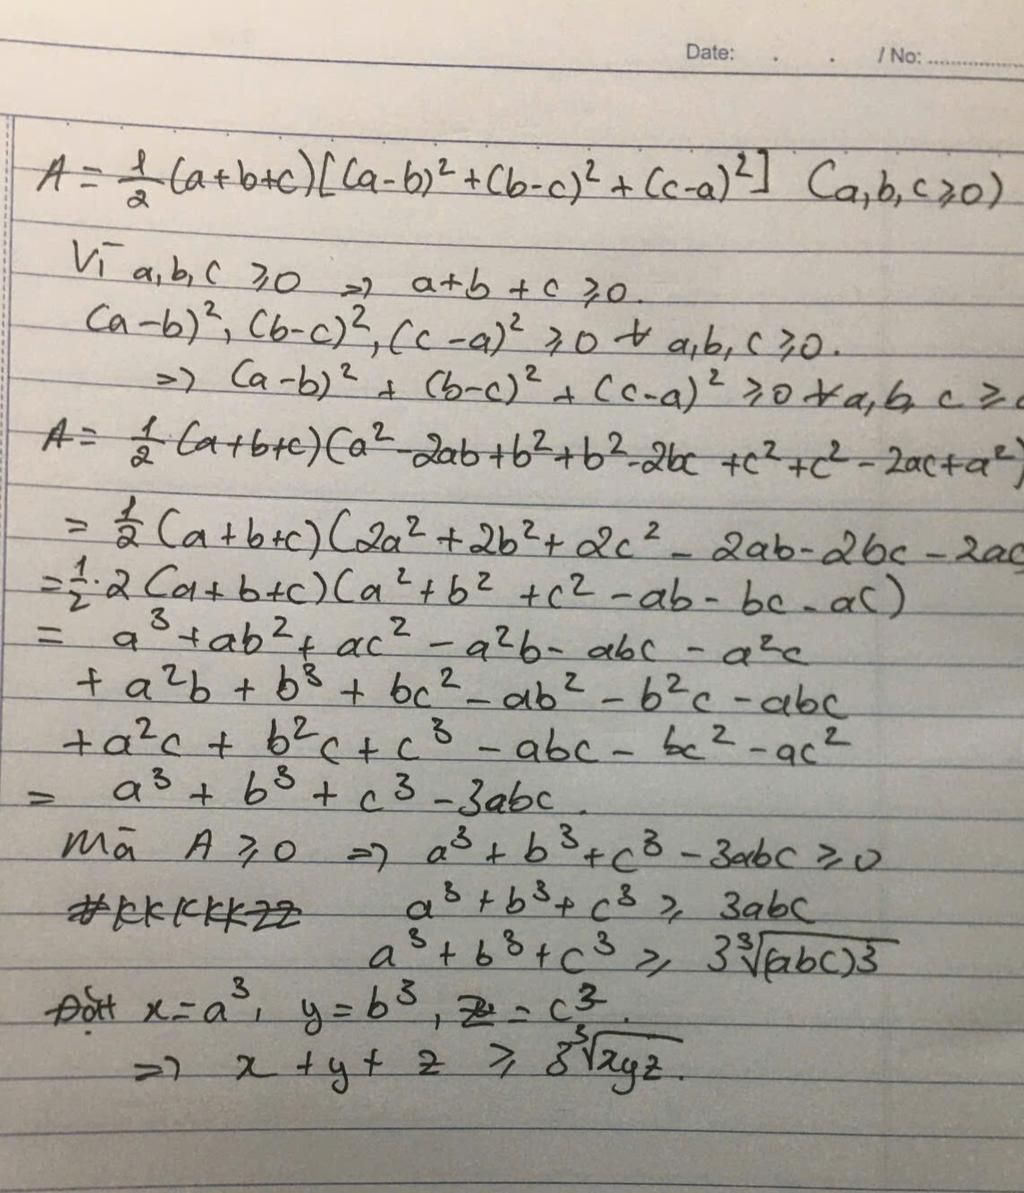 Date: . . / No: ..................
A = 1/2 (a+b+c)[(a-b)² + (b-c)² + (c-a)²] (a,b,c ≥ 0)
Vì a,b,c ≥ 0 => a+b+c ≥ 0.
(a-b)², (b-c)², (c-a)² ≥ 0 ∀ a,b,c ≥ 0.
=> (a-b)² + (b-c)² + (c-a)² ≥ 0 ∀ a,b, c ≥ 0
A = 1/2 (a+b+c)(a² - 2ab + b² + b² - 2bc + c² + c² - 2ac + a²)
= 1/2 (a+b+c)(2a² + 2b² + 2c² - 2ab - 2bc - 2ac
= 1/2 · 2 (a+b+c)(a² + b² + c² - ab - bc - ac)
= a³ + ab² + ac² - a²b - abc - a²c
+ a²b + b³ + bc² - ab² - b²c - abc
+ a²c + b²c + c³ - abc - bc² - ac²
= a³ + b³ + c³ - 3abc.
Mà A ≥ 0 => a³ + b³ + c³ - 3abc ≥ 0
a³ + b³ + c³ ≥ 3abc
a³ + b³ + c³ ≥ 3∛(abc)3
Đặt x = a³, y = b³, z = c³.
=> x + y + z ≥ 3∛xyz.